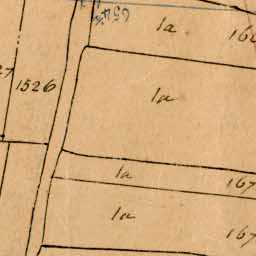 654
1a
1a
1526
1a
167
1a
167